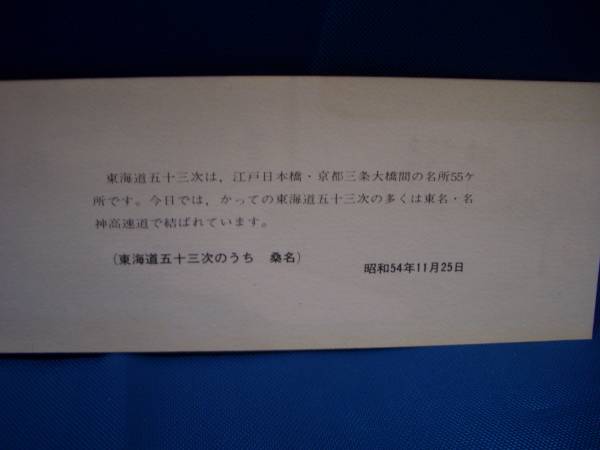 東海道五十三次は，江戸日本橋・京都三条大橋間の名所55ケ
所です。今日では，かっての東海道五十三次の多くは東名・名
神高速道で結ばれています。
(東海道五十三次のうち　桑名)
昭和54年11月25日